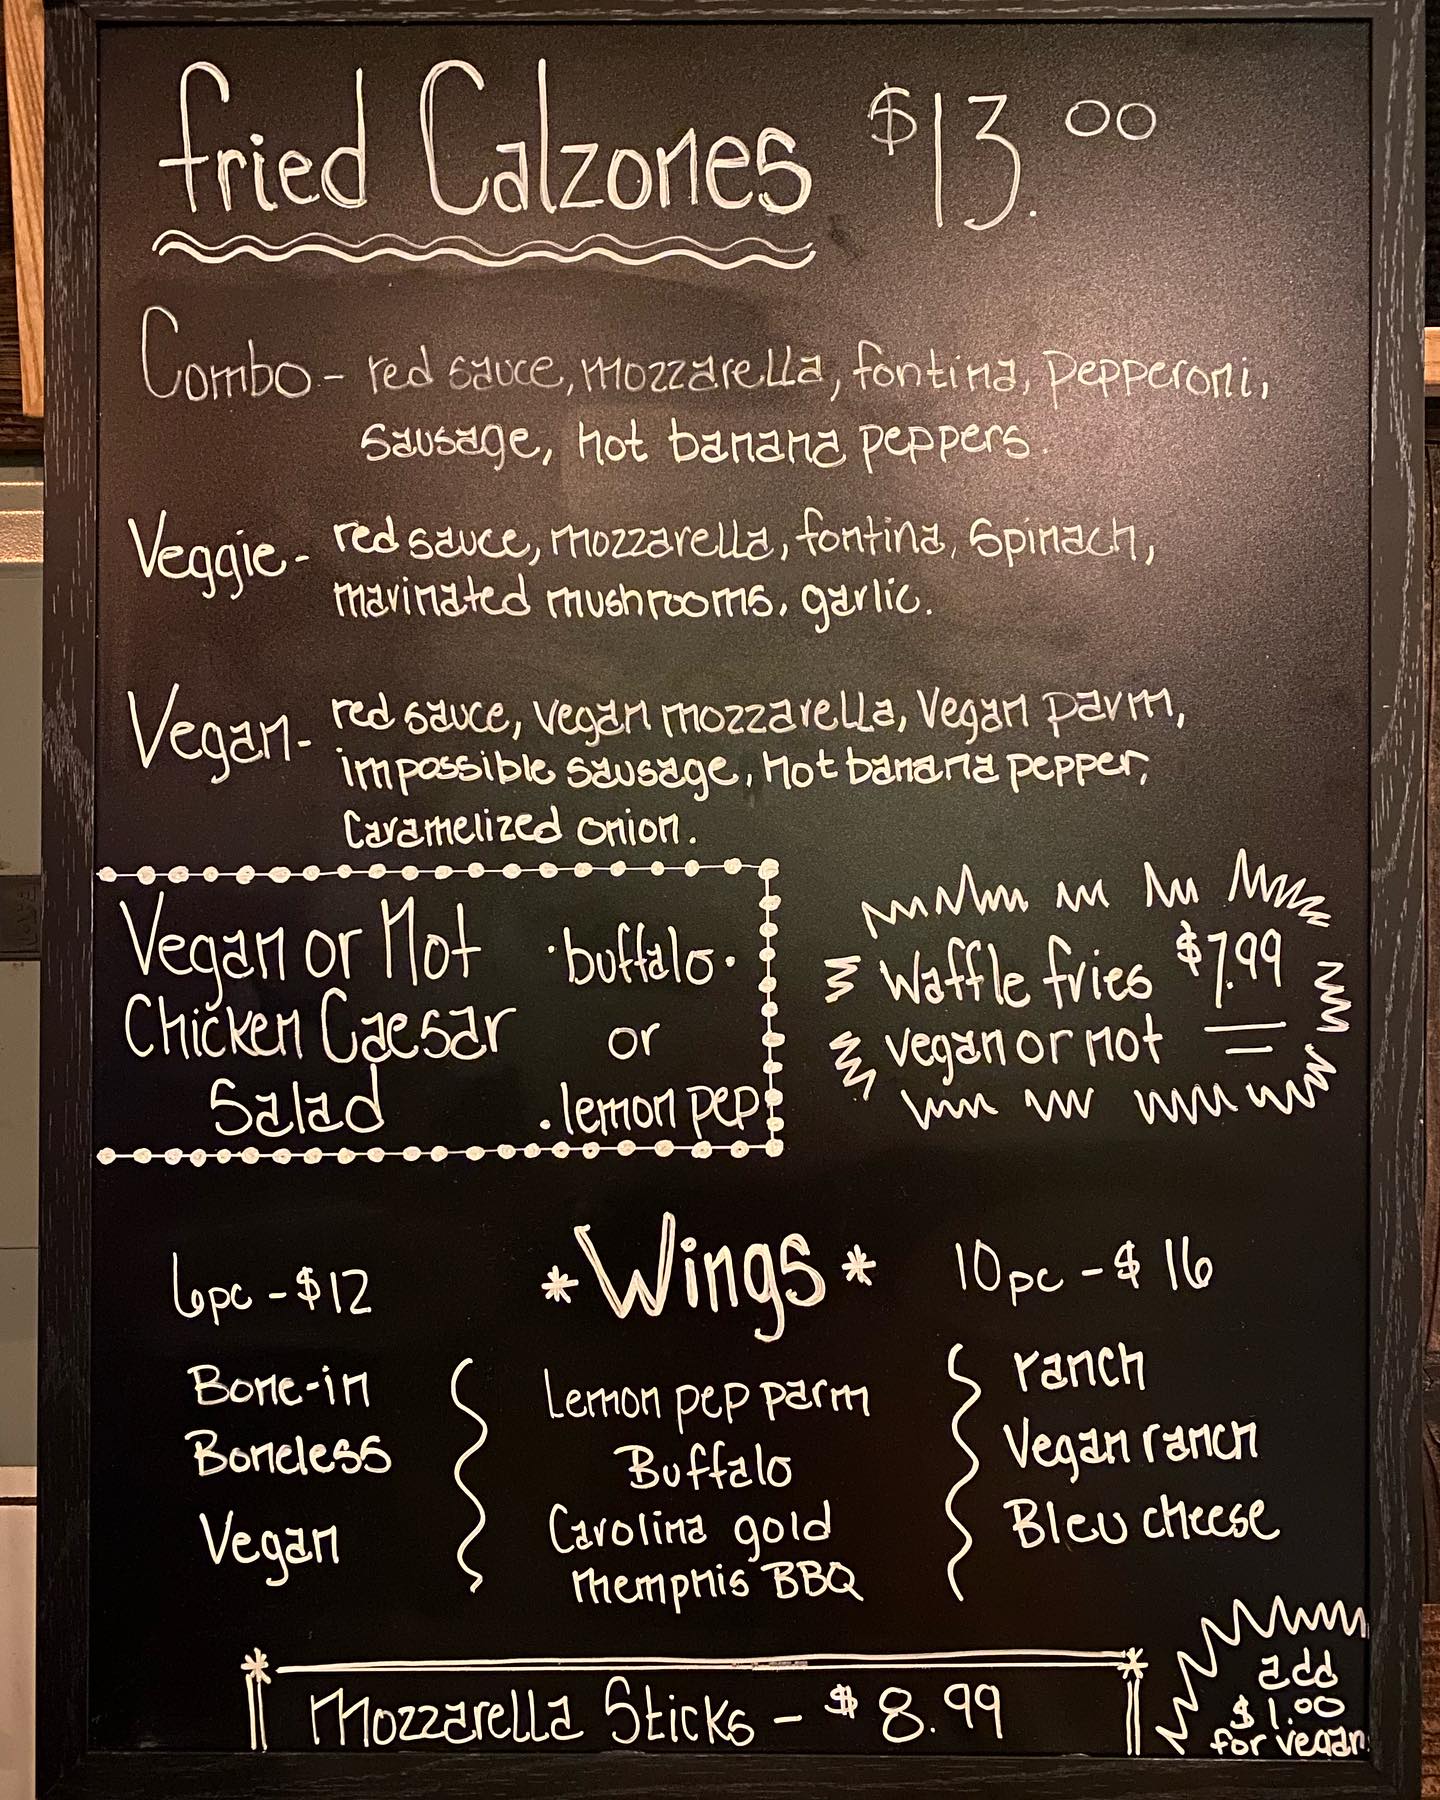 fried Calzones $13.00
Combo - red sauce, mozzarella, fontina, pepperoni,
sausage, hot banana peppers.
Veggie - red sauce, mozzarella, fontina, Spinach,
marinated mushrooms, garlic.
Vegan - red sauce, vegan mozzarella, Vegan parm,
impossible sausage, hot banana pepper,
Caramelized onion.
Vegan or Not
Chicken Caesar
Salad
·buffalo·
or
·lemon pep
Waffle fries $7.99
vegan or not
6pc - $12
*Wings*
10pc - $16
Bone-in
Boneless
Vegan
Lemon pep parm
Buffalo
Carolina gold
Memphis BBQ
ranch
Vegan ranch
Bleu cheese
Mozzarella Sticks - $8.99
add
$1.00
for vegan